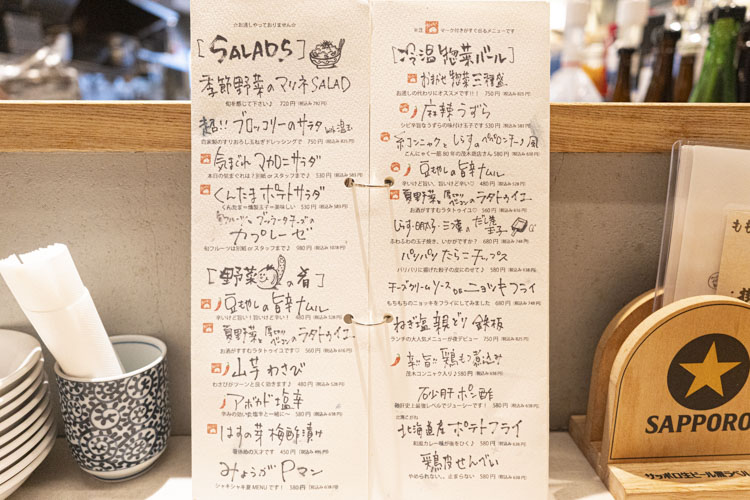 ☆お通しやっておりません☆
[SALADS]
季節野菜のマリネSALAD
旬を感じて下さい♪ 720円 (税込み792円)
超!!ブロッコリーのサラダ with 温玉
自家製のすりおろし玉ねぎドレッシングで 750円 (税込み825円)
気まぐれ マカロニサラダ
本日の気まぐれは?別紙 or スタッフまで♪ 530円 (税込み583円)
くんたま ポテトサラダ
くんたま=燻製玉子=美味しい 530円 (税込み583円)
旬フルーツとブッラータチーズの
カプレーゼ
旬フルーツは別紙 or スタッフまで♪ 980円 (税込み1078円)
[野菜の肴]
豆もやしの旨辛ナムル
辛いけど旨い!旨いけど辛い! 480円 (税込み528円)
夏野菜と厚切りベーコンのラタトゥイユ
お酒がすすむラタトゥイユです♡ 560円 (税込み616円)
山芋わさび
わさびがツーンと良く効きます! 480円 (税込み528円)
アボカド塩辛
辛みの効いた塩辛と一緒に〜 580円 (税込み638円)
はすの芽 梅酢漬け
箸休めの天才です 450円 (税込み495円)
みょうがPマン
シャキシャキ夏MENUです! 580円 (税込み638円)
マーク付きがすぐ出るメニューです
[冷温惣菜バール]
おまかせ惣菜三種盛
お通しの代わりにオススメです!! 750円 (税込み825円)
麻辣うずら
シビ辛旨なうずらの味付け玉子です 530円 (税込み583円)
糸コンニャクとしらすのペペロンチーノ風
こんにゃく一筋80年の茂木商店さん 580円 (税込み638円)
豆もやしの旨辛ナムル
辛いけど旨い、旨いけど辛い♡ 480円 (税込み528円)
夏野菜と厚切りベーコンのラタトゥイユ
お酒がすすむラタトゥイユ♡ 560円 (税込み616円)
しらす・明太子・三つ葉のだし巻玉子
ふわふわの玉子焼き、いかがですか? 680円 (税込み748円)
パリパリたらこチップス
パリパリに揚げた餃子の皮にのせて♪ 580円 (税込み638円)
チーズクリームソース DE ニョッキフライ
もちもちのニョッキをフライにしてみました 680円 (税込み748円)
ねぎ塩親どり鉄板
ランチの大人気メニューが夜デビュー 750円 (税込み825円)
辛い旨い鶏もつ煮込み
茂木コンニャク入り♪ 580円 (税込み638円)
砂肝ポン酢
砂肝史上最強レベルでジューシーです! 580円 (税込み638円)
北海道産ポテトフライ
和風カレー味が後をひく♪ 580円 (税込み638円)
鶏皮せんべい
やめられない、、止まらない 580円 (税込み638円)
SAPPORO
サッポロ生ビール黒ラベル